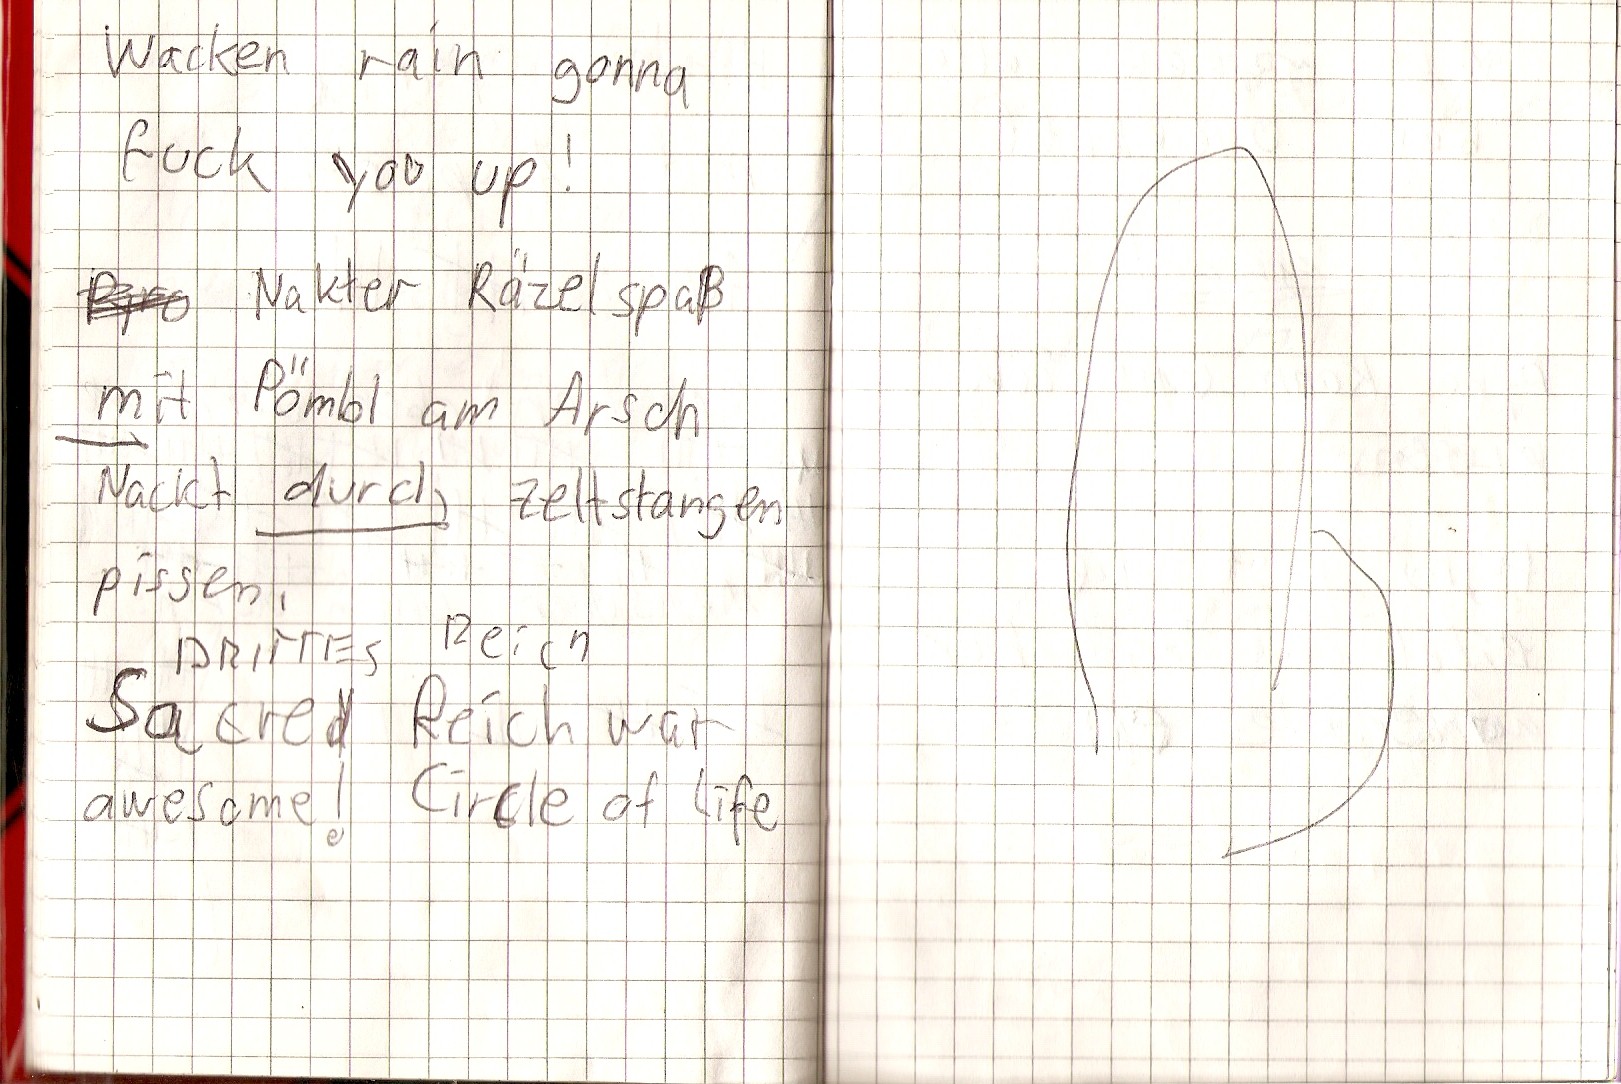 Wacken rain gonna
fuck you up!
Nakter Räzelspaß
mit Pömbl am Arsch
Nackt durch zeltstangen
pissen.
DRITTES Reich
Sacred Reich war
awesome! Circle of Life